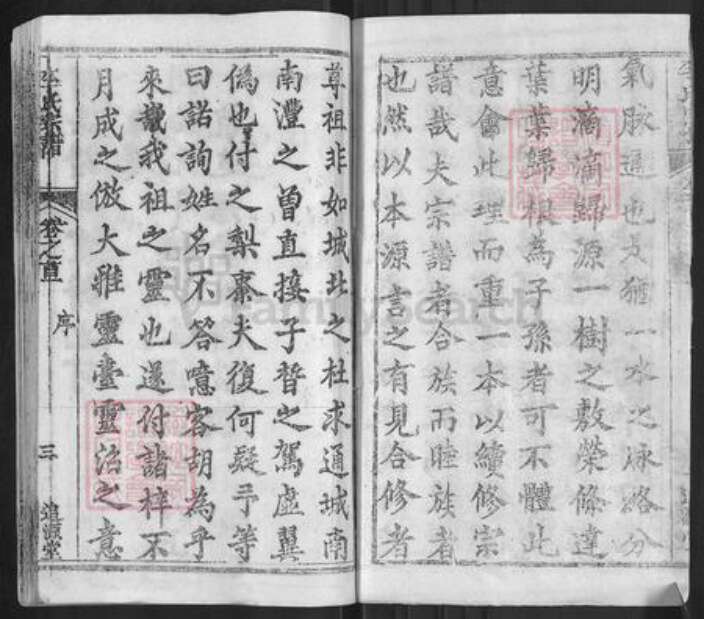 氣脉通也是猶一水之脉絡分
明滴滴歸源一樹之敷榮條達
葉葉歸根為子孫者可不體此
意會此理而重一本以續修宗
譜哉夫宗譜者合族而睦族者
也然以本源言之有見合修者
尊祖非如城北之杜求通城南
南灃之曾直接子晳之駕虛翼
偽也付之梨棗夫復何疑予等
曰諾詢姓名不答噫客胡為乎
來哉我祖之靈也遂付諸梓不
月成之倣大雅靈臺靈沼之意
李氏宗譜
卷之首
序
三
追淑堂
FamilySearch